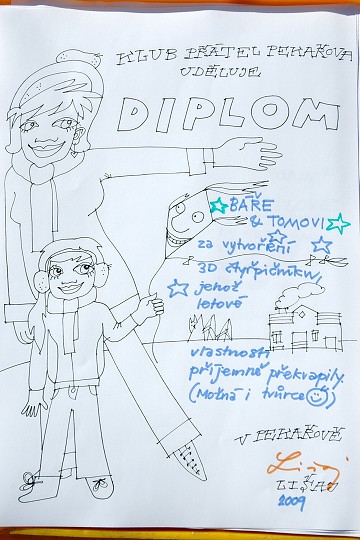 KLUB PŘÁTEL PEKAŘOVA
UDĚLUJE
DIPLOM
BÁŘE
& TOMOVI
za vytvoření
3D čtyřpičníku,
jehož
letové
vlastnosti
příjemně překvapily.
(Možná i tvůrce)
V PEKAŘOVĚ
LIŠAJ
2009